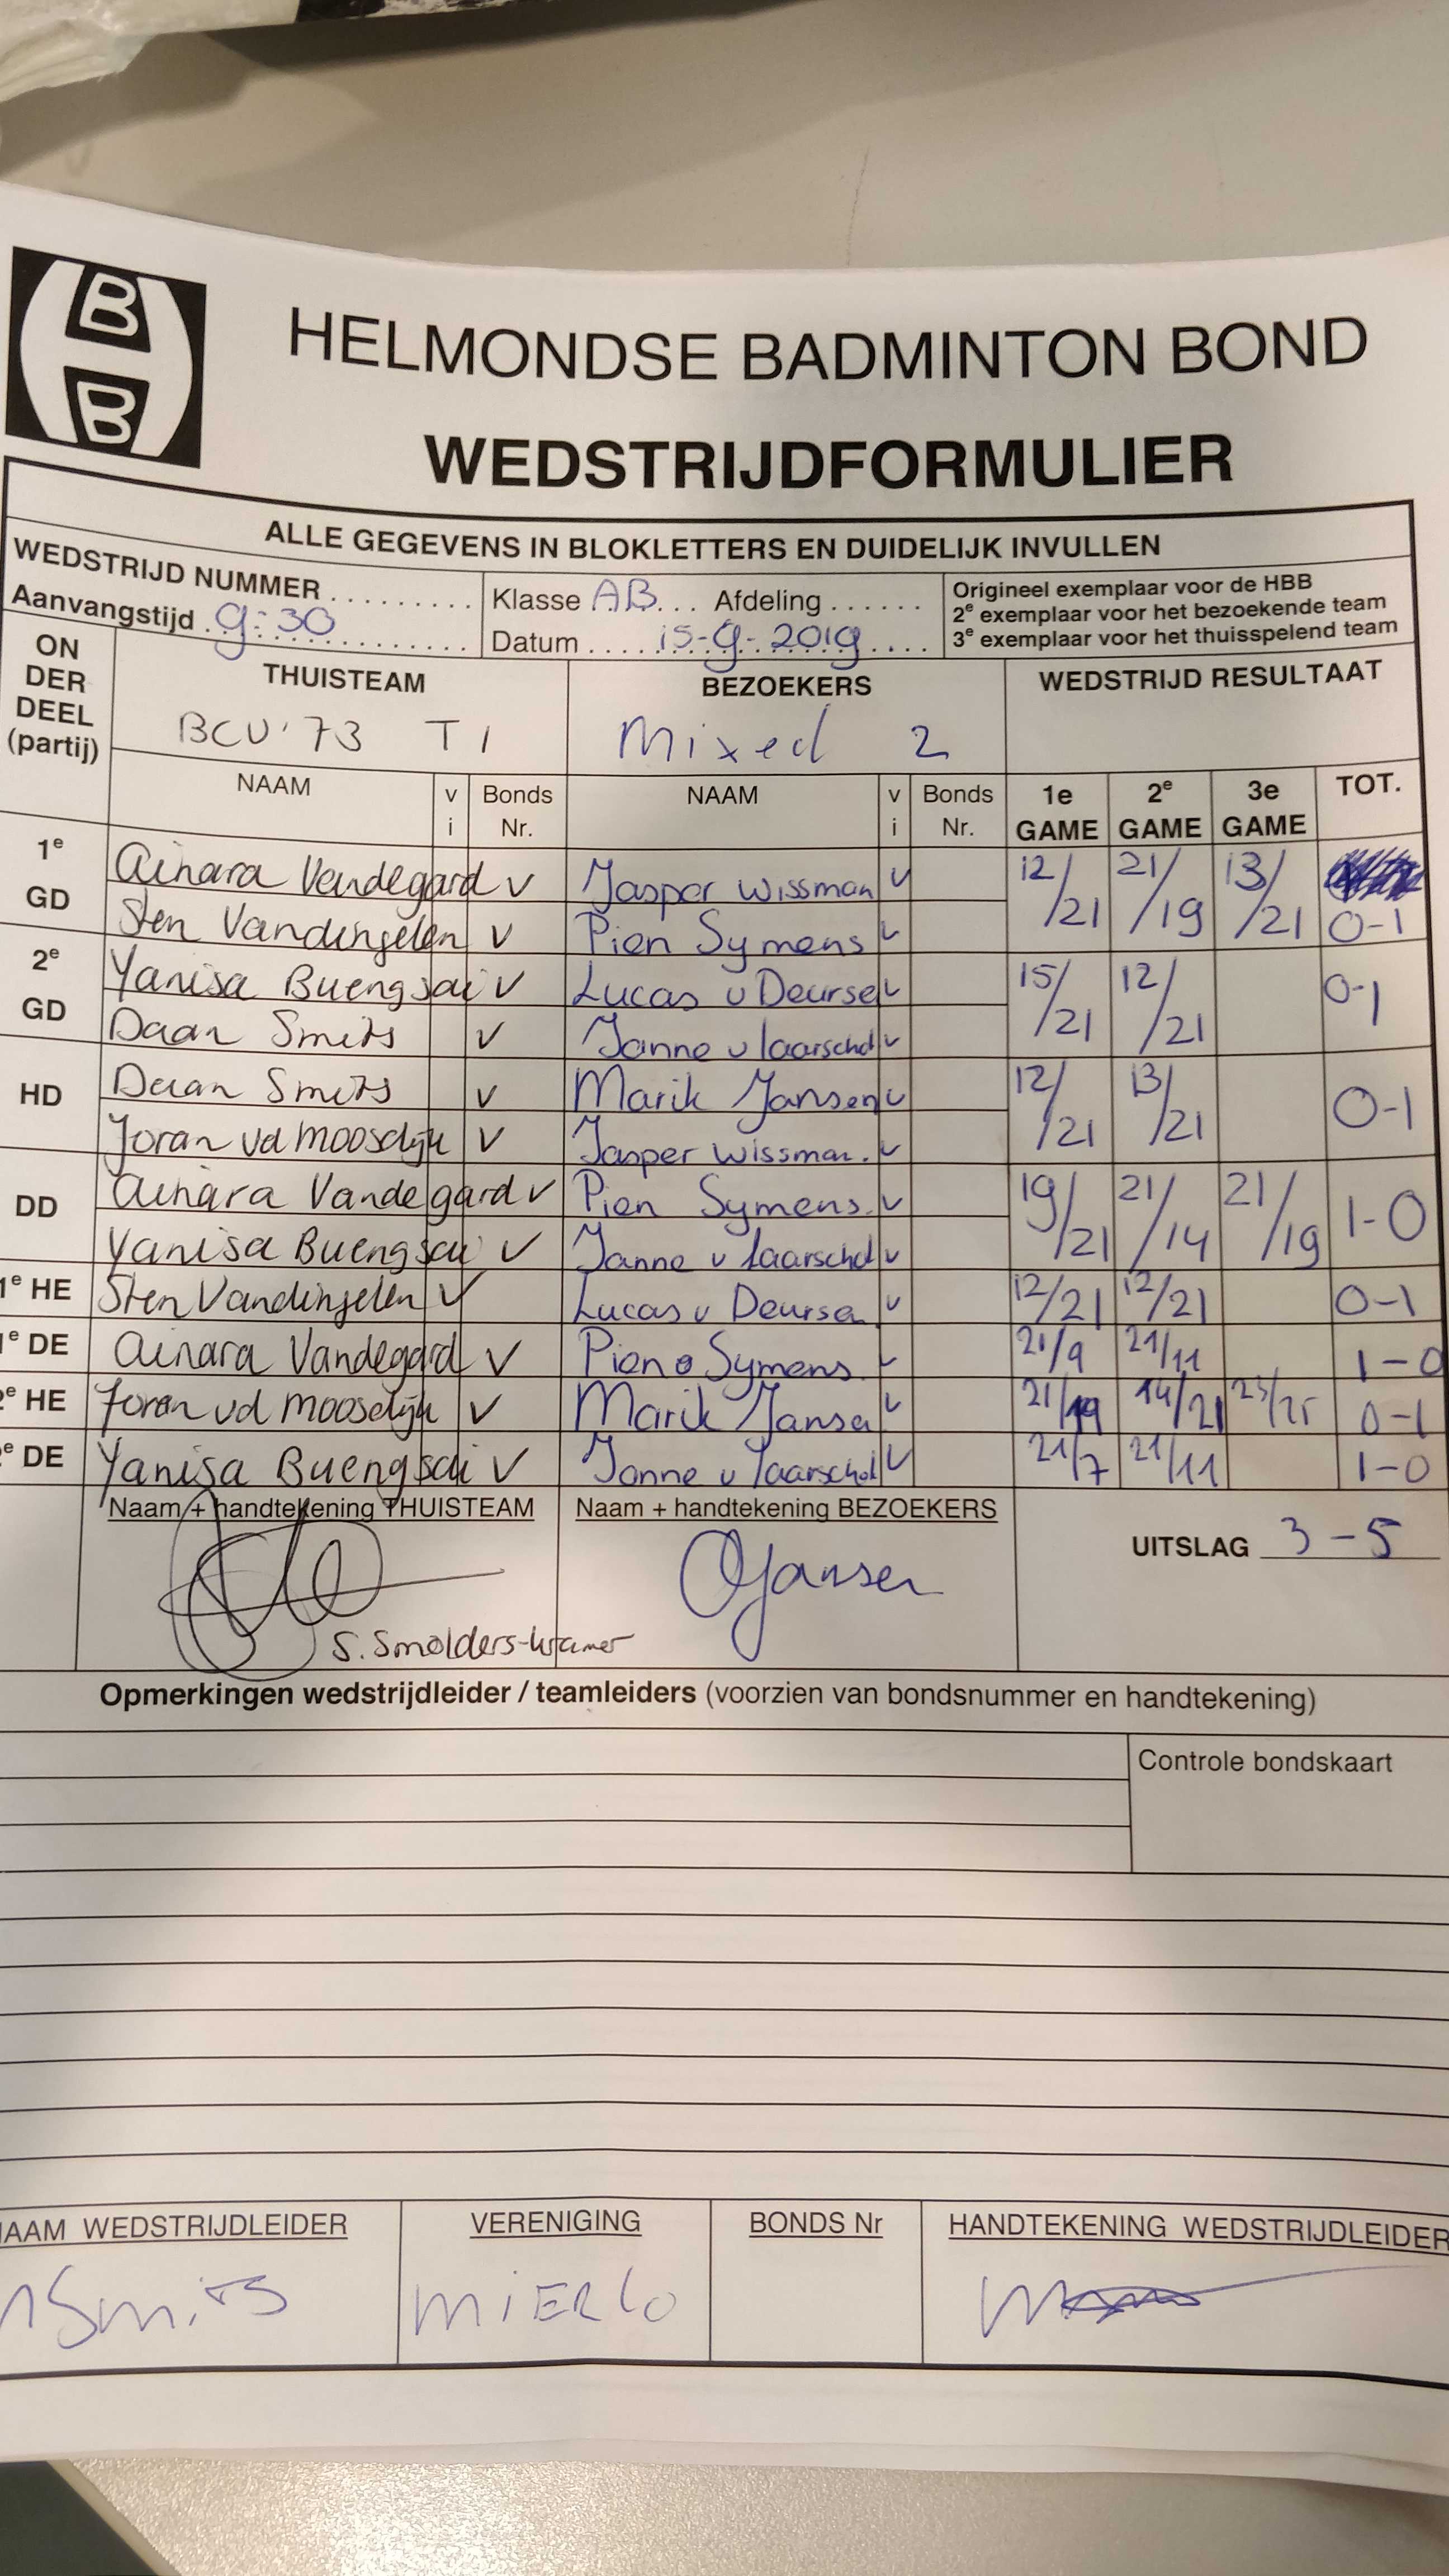 B
B
HELMONDSE BADMINTON BOND
WEDSTRIJDFORMULIER
ALLE GEGEVENS IN BLOKLETTERS EN DUIDELIJK INVULLEN
WEDSTRIJD NUMMER .........
Aanvangstijd 9:30
Klasse AB... Afdeling ......
Datum ..... 15-9-2019 ....
Origineel exemplaar voor de HBB
2e exemplaar voor het bezoekende team
3e exemplaar voor het thuisspelend team
ON
DER
DEEL
(partij)
THUISTEAM
BCV'73 T1
BEZOEKERS
Mixed 2
WEDSTRIJD RESULTAAT
NAAM v i Bonds Nr. NAAM v i Bonds Nr. 1e GAME 2e GAME 3e GAME TOT.
1e GD Ainara Vandegard v Jasper Wissman v 12/21 21/19 13/21
Sten Vandingelen v Pien Symens v 0-1
2e GD Yanisa Buengsai v Lucas v Deurse v 15/21 12/21 0-1
Daan Smits v Janne v Laarschd v
HD Daan Smits v Marik Jansen v 12/21 13/21 0-1
Joran vd Moosdijk v Jasper Wissman. v
DD Ainara Vandegard v Pien Symens. v 19/21 21/14 21/19 1-0
Yanisa Buengsai v Janne v Laarschd v
1e HE Sten Vandingelen v Lucas v Deursen v 12/21 12/21 0-1
1e DE Ainara Vandegard v Pien Symens. v 21/9 21/11 1-0
2e HE Joran vd Moosdijk v Marik Jansen v 21/19 14/21 23/25 0-1
e DE Yanisa Buengsai v Janne v Laarschd v 21/7 21/11 1-0
Naam + handtekening THUISTEAM
S. Smolders-Kramer
Naam + handtekening BEZOEKERS
Jansen
UITSLAG 3-5
Opmerkingen wedstrijdleider / teamleiders (voorzien van bondsnummer en handtekening)
Controle bondskaart
NAAM WEDSTRIJDLEIDER VERENIGING BONDS Nr HANDTEKENING WEDSTRIJDLEIDER
Smits MIERLO